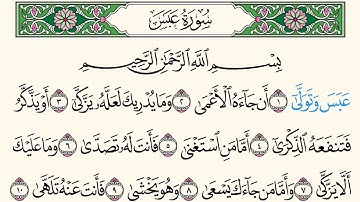 سُورَةُ عَبَسَ
بِسْمِ اللَّهِ الرَّحْمَٰنِ الرَّحِيمِ
عَبَسَ وَتَوَلَّىٰٓ ١ أَن جَآءَهُ ٱلْأَعْمَىٰ ٢ وَمَا يُدْرِيكَ لَعَلَّهُۥ يَزَّكَّىٰٓ ٣ أَوْ يَذَّكَّرُ
فَتَنفَعَهُ ٱلذِّكْرَىٰٓ ٤ أَمَّا مَنِ ٱسْتَغْنَىٰ ٥ فَأَنتَ لَهُۥ تَصَدَّىٰ ٦ وَمَا عَلَيْكَ
أَلَّا يَزَّكَّىٰ ٧ وَأَمَّا مَن جَآءَكَ يَسْعَىٰ ٨ وَهُوَ يَخْشَىٰ ٩ فَأَنتَ عَنْهُ تَلَهَّىٰ ١٠